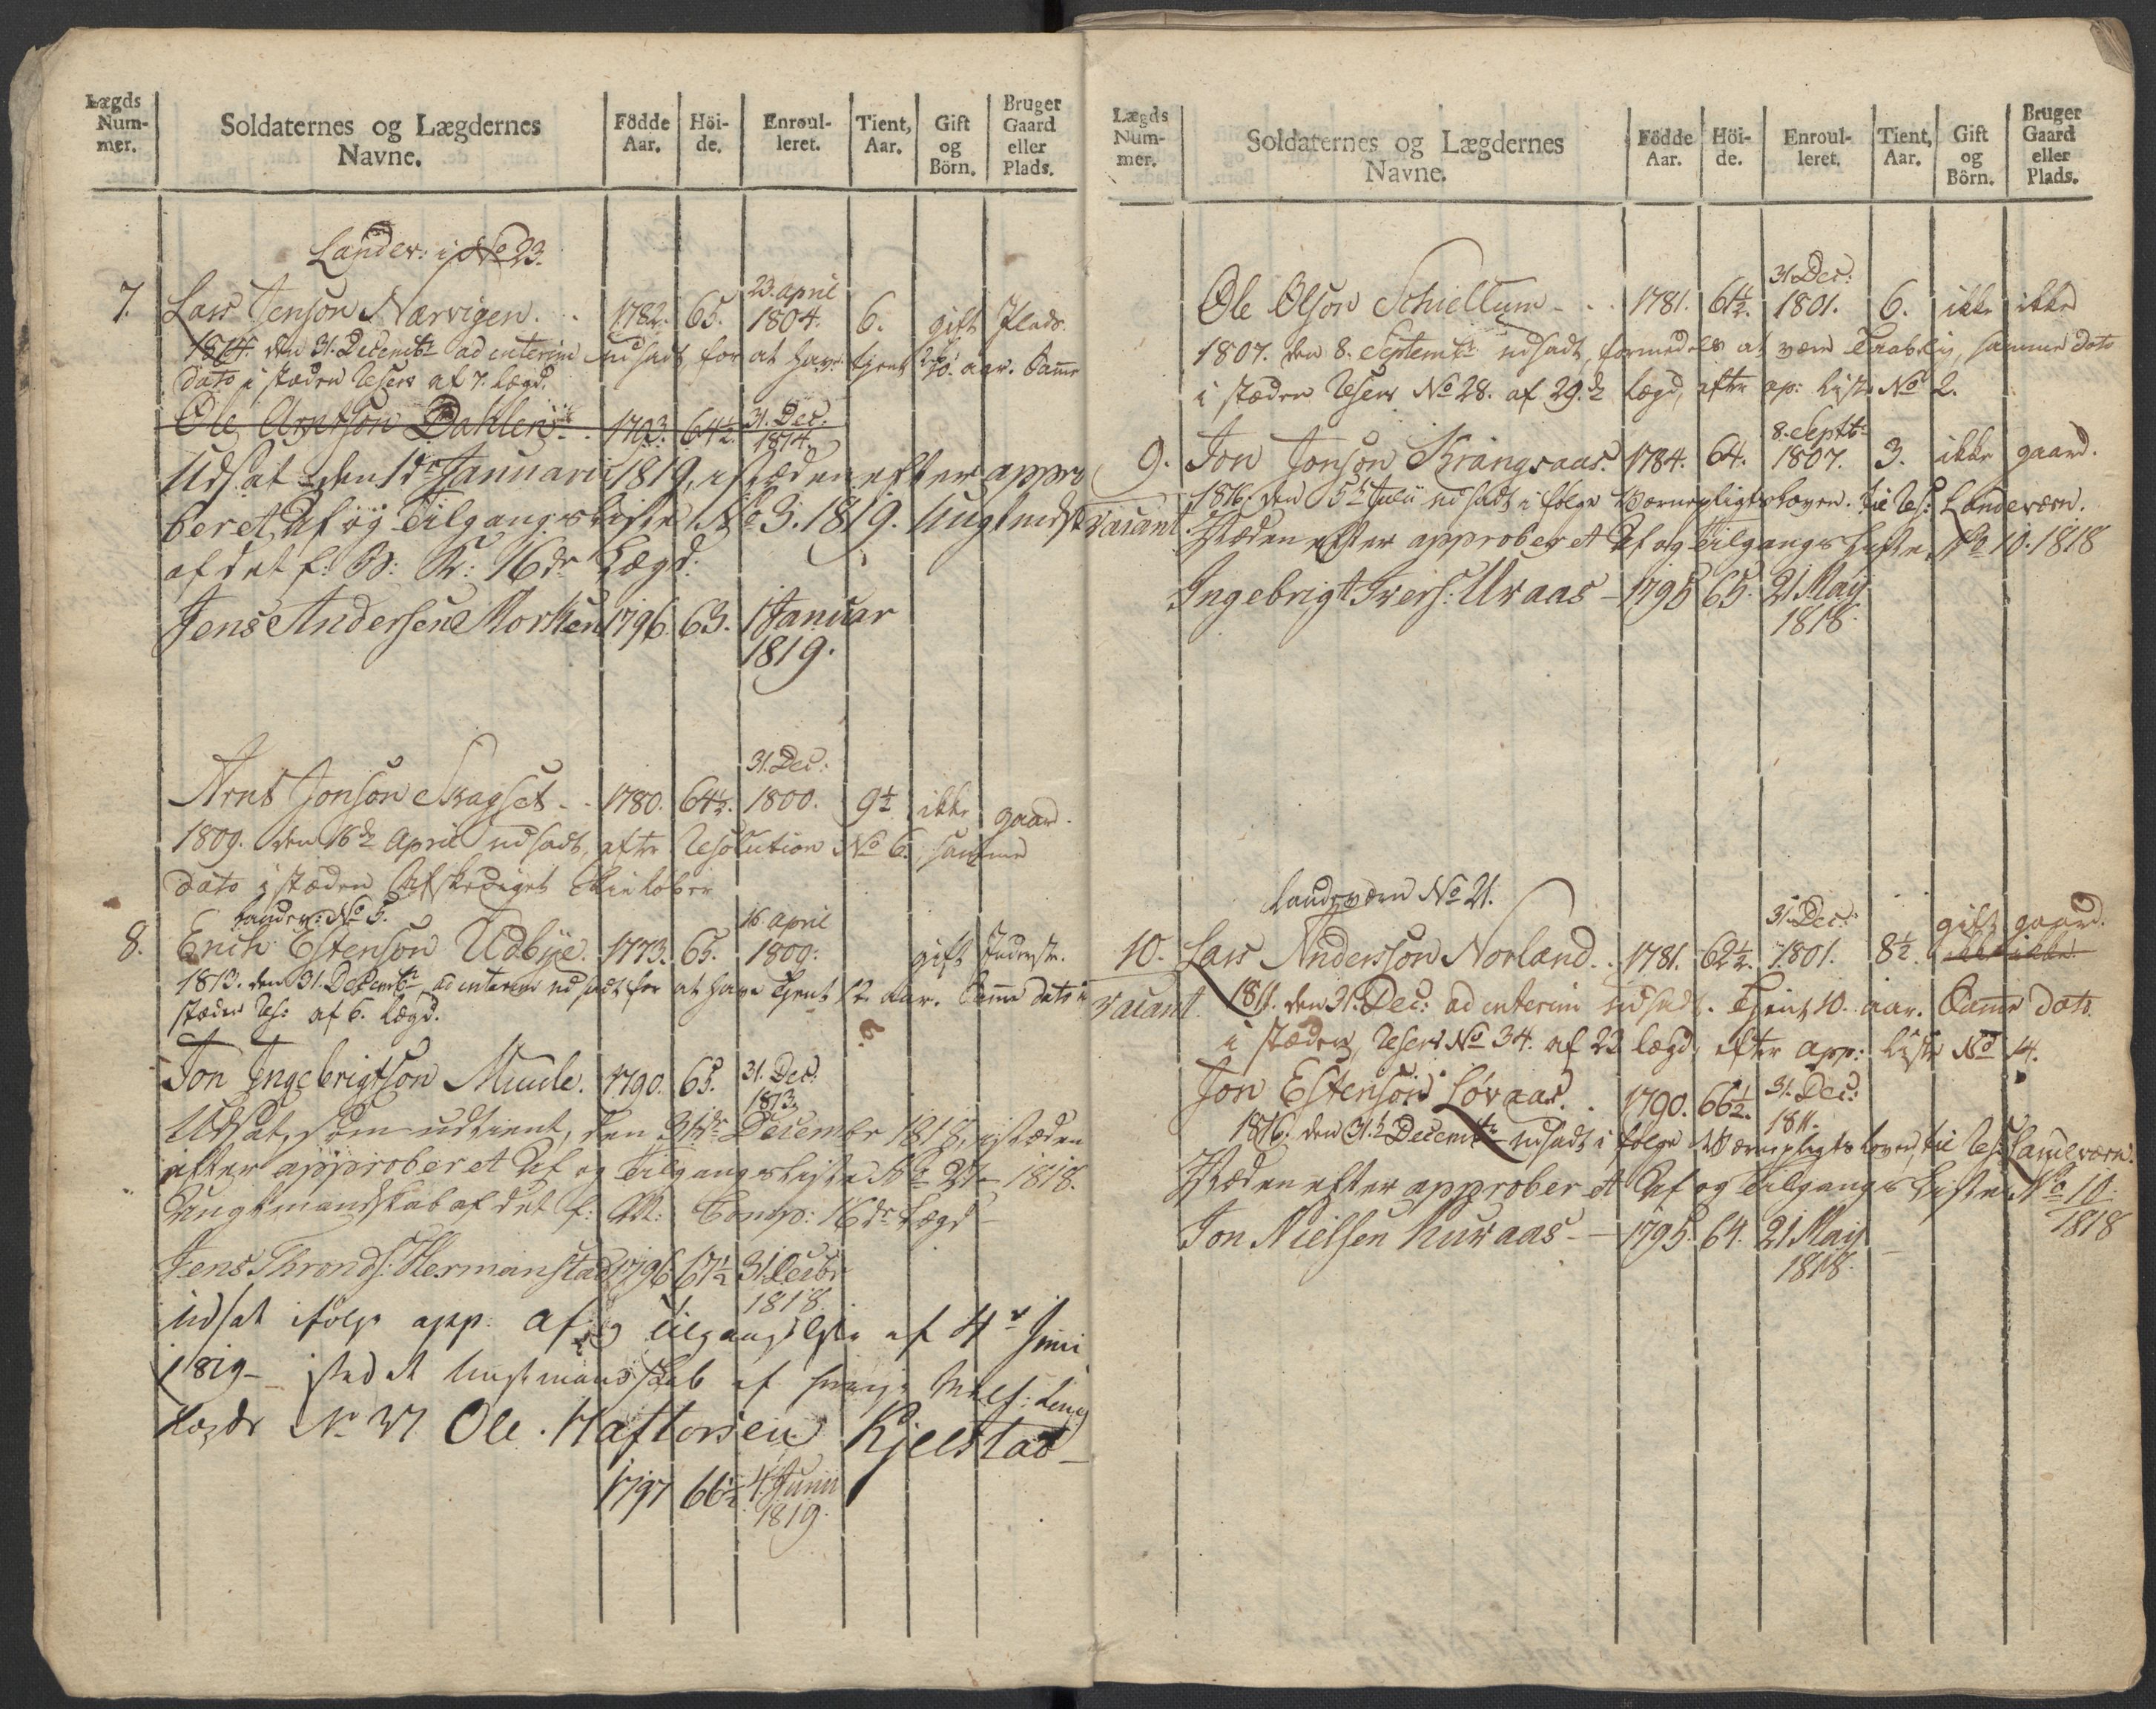 Lægds Num- mer.
Soldaternes og Lægdernes Navne.
Födde Aar.
Höi- de.
Enroul- leret.
Tient, Aar.
Gift og Börn.
Bruger Gaard eller Plads.
Landev: i No 23.
7. Lars Jensøn Narvigen. 1782. 65. 23. april 1804. 6. gift Plads.
1814. den 31. Decembr ad interim udsadt for at have tjent 10. aar. Samme
dato i stæden Reserv af 7. Lægd.
Ole Arntsøn Dahlen 1793. 64½. 31. Dec: 1814.
Udsat den 1de Januari 1819, istæden efter appro
beret Af og Tilgangs Liste No 3. 1819. Ungtmdsk
af det f: W: K: 16de Lægd:
Jens Andersen Morken 1796. 63. 1 Januar 1819.
Arnt Jonsøn Skagset 1780. 64½. 31. Dec: 1800. 9½ ikke gaard.
1809. den 16de April udsadt, efter Resolution No 6. samme
dato i stæden Afskediget Skieløber
Landev: No 5.
8. Erich Estensøn Udbye. 1773. 65. 16 april 1809. gift
1813. den 31. Decembr ad interim udsadt for at have tjent 12. aar. Samme dato i
stæden Res: af 6. Lægd.
Jon Ingebrigtsøn Muule. 1790. 65. 31. Dec: 1813.
Udsat, som udtient, den 31de Decembr 1818, istæden
efter approberet Af og Tilgangsliste No 27 1818.
Ungtmandskab af det f: Comp: 16de Lægd
Jens Thronds: Hermanstad 1796 67½ 31 Decbr 1818.
udsat ifølge app: af og Tilgangsliste af 4de Juni
1819 isted et Ungtmandskab af
Lægds No 37 Ole Haftorsen Kjelstad
1797 66½ 4 Junii 1819.
Lægds Num- mer.
Soldaternes og Lægdernes Navne.
Födde Aar.
Höi- de.
Enroul- leret.
Tient, Aar.
Gift og Börn.
Bruger Gaard eller Plads.
Ole Olsøn Schiellum 1781. 61½. 31. Dec: 1801. 6. ikke ikke
1807. den 8. Septembr udsadt, formedelst at være samme dato
i stæden Reserv No 28. af 29de Lægd, efter ap: Liste No 2.
9. Jon Jonsøn Krangsaas. 1784. 64. 8. Septbr 1807. 3. ikke gaard.
1816. den 5te Julii udsadt i følge Værnepligtsloven til Res: Landeværn.
vacant. Istæden efter approberet Af og Tilgangs Liste No 10. 1818
Ingebrigt Ivers: Uraas 1795 65. 21 Maij 1818.
Landeværn No 21.
10. Lars Anderssøn Norland. 1781. 62½. 31. Dec: 1801. 8½. gift gaard. ikke ikke
vacant. 1811. den 31. Dec: ad interim udsadt. Tjent 10. aar. Samme dato
i stæden, Reserv No 34. af 23 Lægd, efter app: Liste No 14.
Jon Estensøn Løvaas. 1790. 66½. 31. Dec: 1811.
1816. den 31te Decembr udsadt i følge Værnepligts loven, til Res: Landeværn.
Istæden efter approberet Af og Tilgangs Liste No 10. 1818
Jon Nielsen Kuraas 1795. 64. 21 Maij 1818.